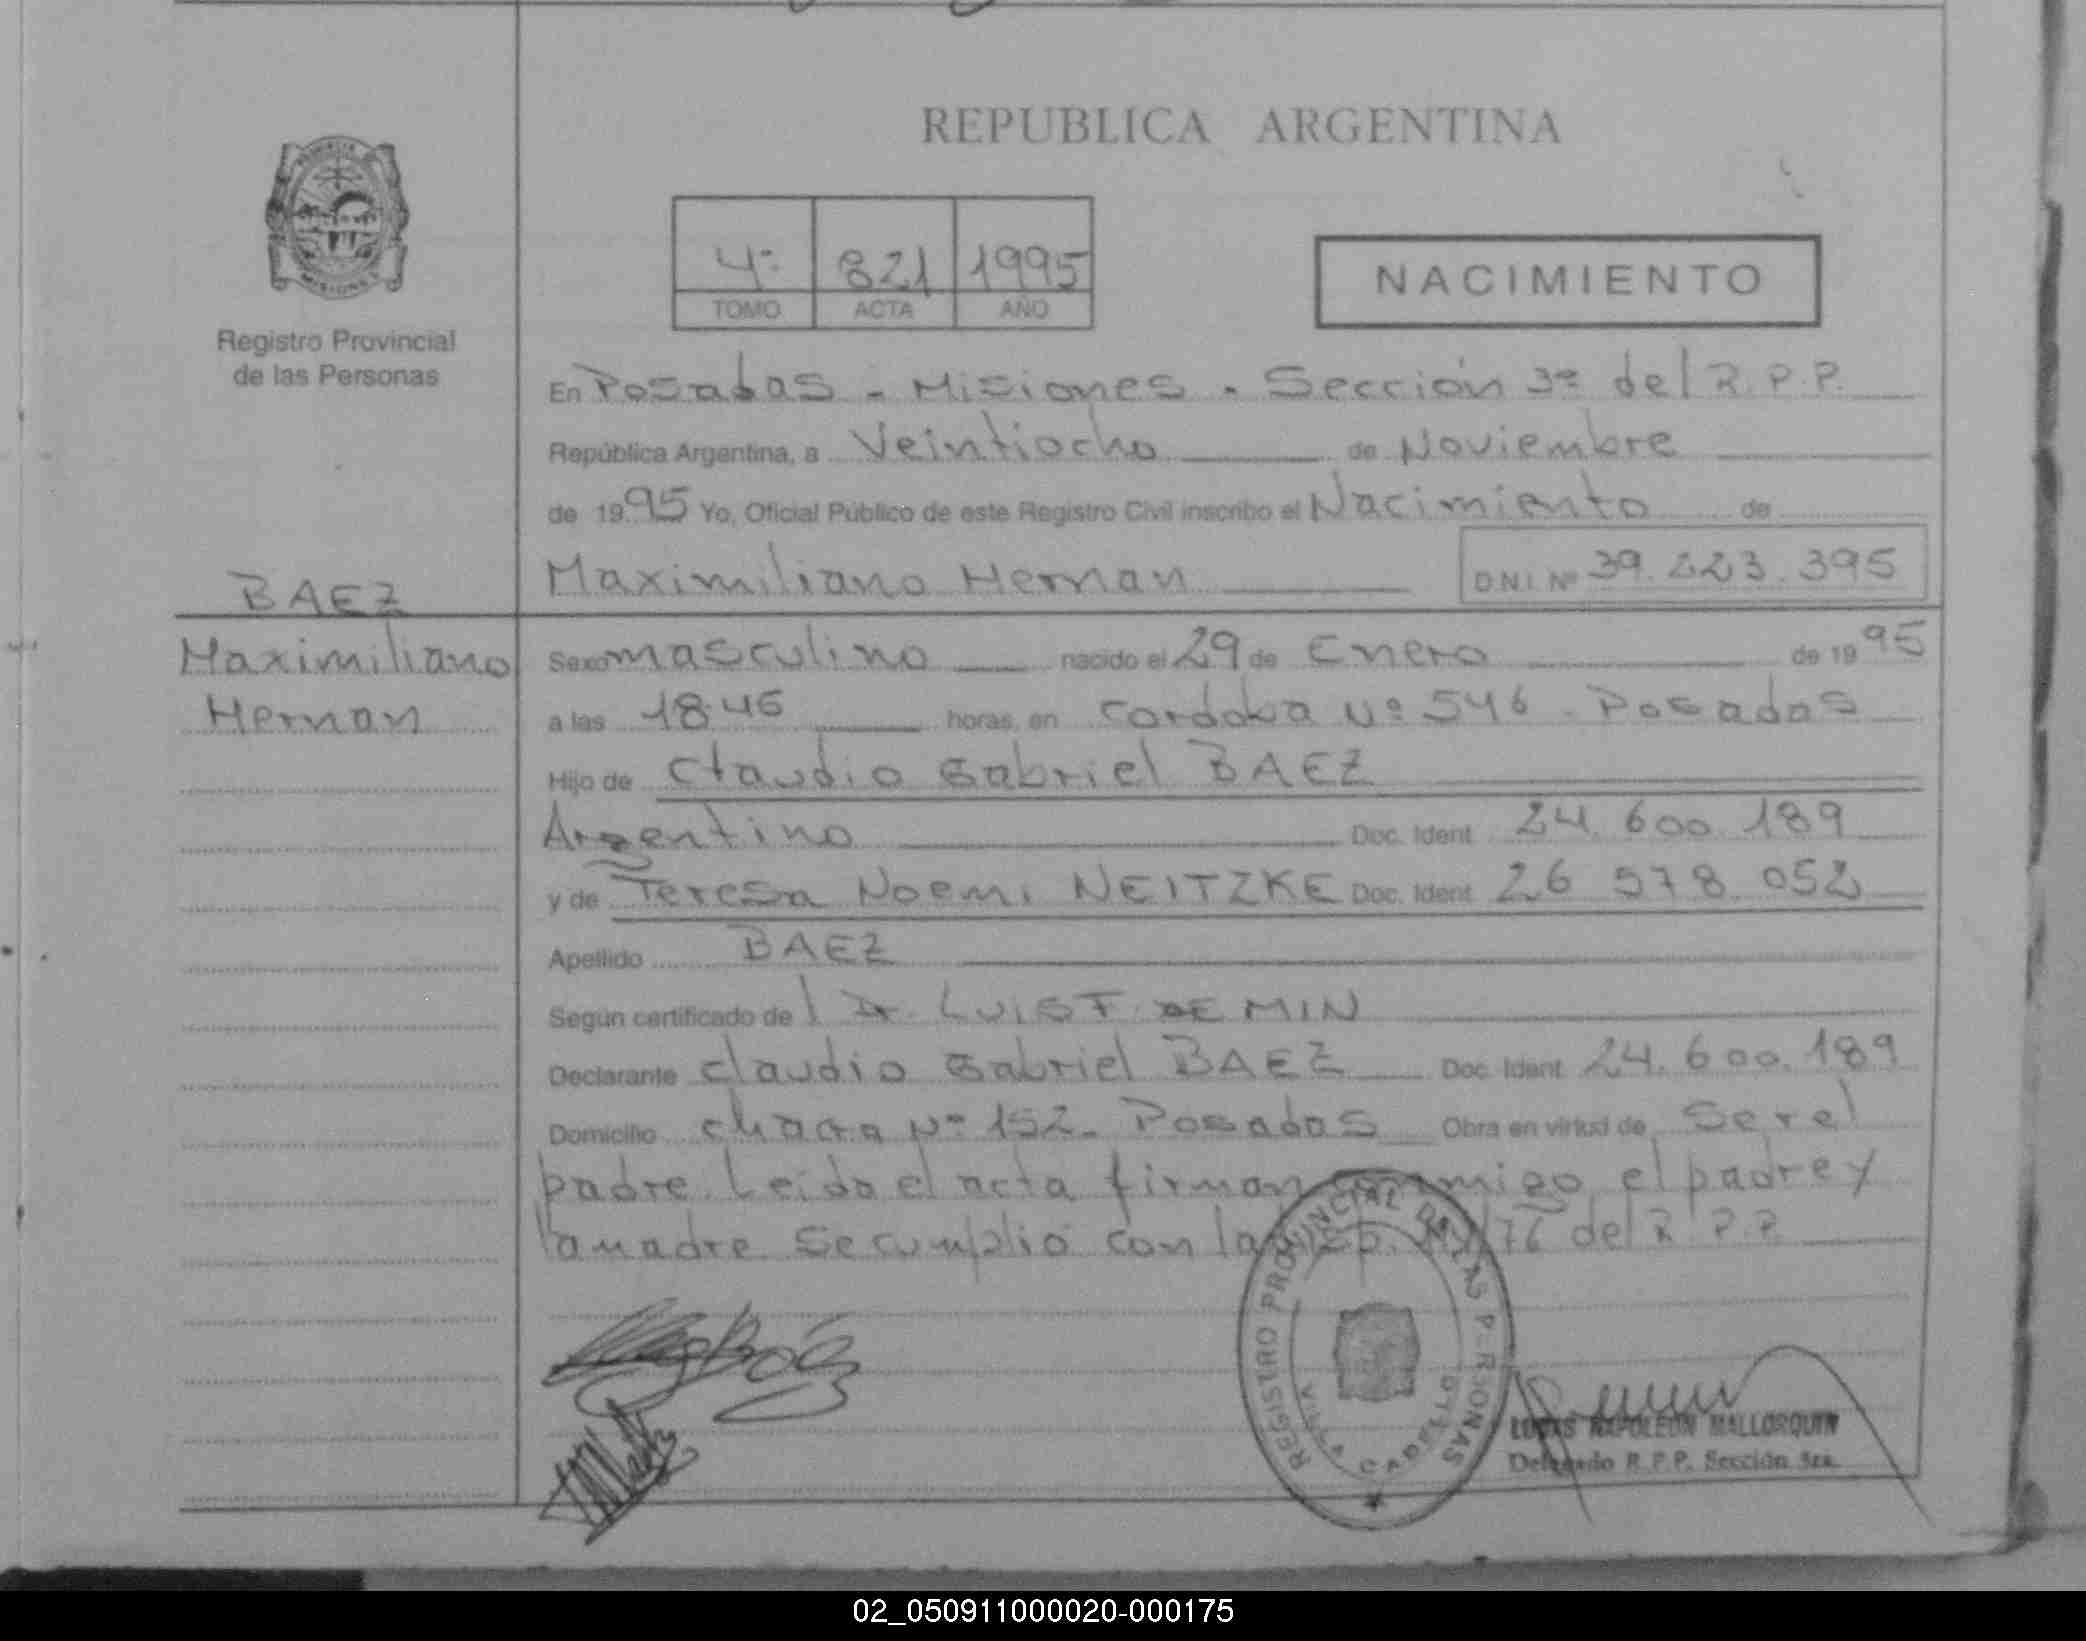 REPUBLICA ARGENTINA
PROVINCIA
MISIONES
Registro Provincial
de las Personas
4º 821 1995
TOMO ACTA AÑO
NACIMIENTO
En Posadas - Misiones - Sección 3ª del R.P.P.
República Argentina, a Veintiocho de Noviembre
de 1995 Yo, Oficial Público de este Registro Civil inscribo el Nacimiento de
Maximiliano Hernan D.N.I. Nº 39.223.395
BAEZ
Maximiliano
Hernan
Sexo masculino nacido el 29 de Enero de 1995
a las 18.45 horas, en Cordoba Nº 546 - Posadas
Hijo de Claudio Gabriel BAEZ
Argentino Doc. Ident 24.600.189
y de Teresa Noemi NEITZKE Doc. Ident 26 578 052
Apellido BAEZ
Según certificado del Dr. LUIS F. DE MIN
Declarante Claudio Gabriel BAEZ Doc. Ident 24.600.189
Domicilio chacra Nº 152 - Posadas Obra en virtud de Ser el
padre. Leida el acta firman conmigo el padre y
la madre Se cumplió con la Disp. /76 del R.P.P.
REGISTRO PROVINCIAL DE LAS PERSONAS
VILLA CABELLO
LUCAS NAPOLEON MALLORQUIN
Delegado R.P.P. Sección 3ra.
02_050911000020-000175